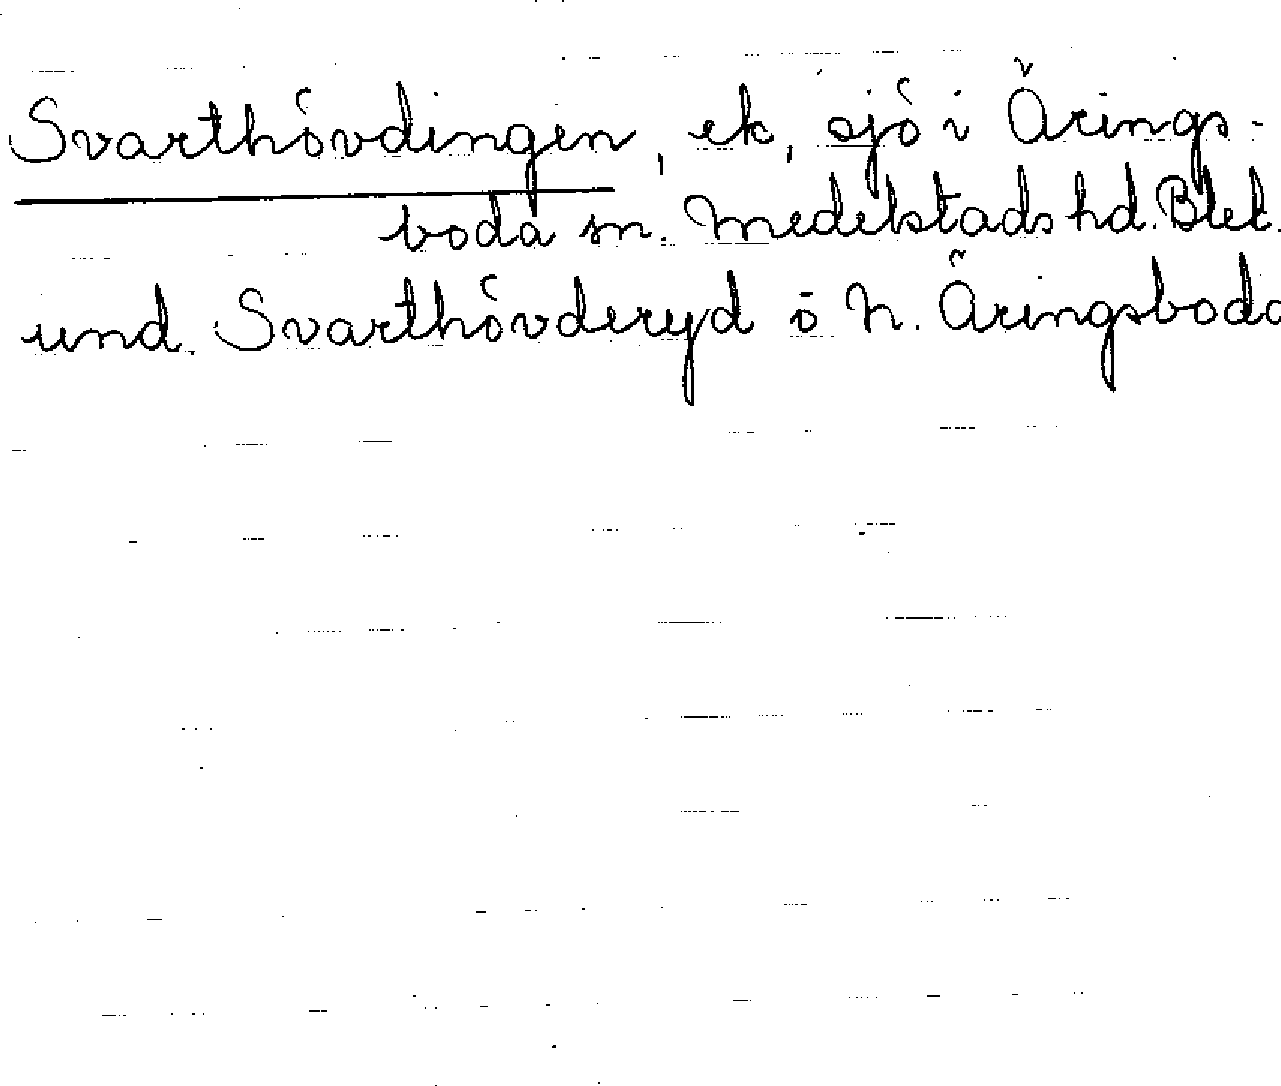 Svarthövdingen, ek, sjö i Ärings-
boda sn. Medelstads hd. Blek.
und. Svarthövderyd o N. Äringsboda